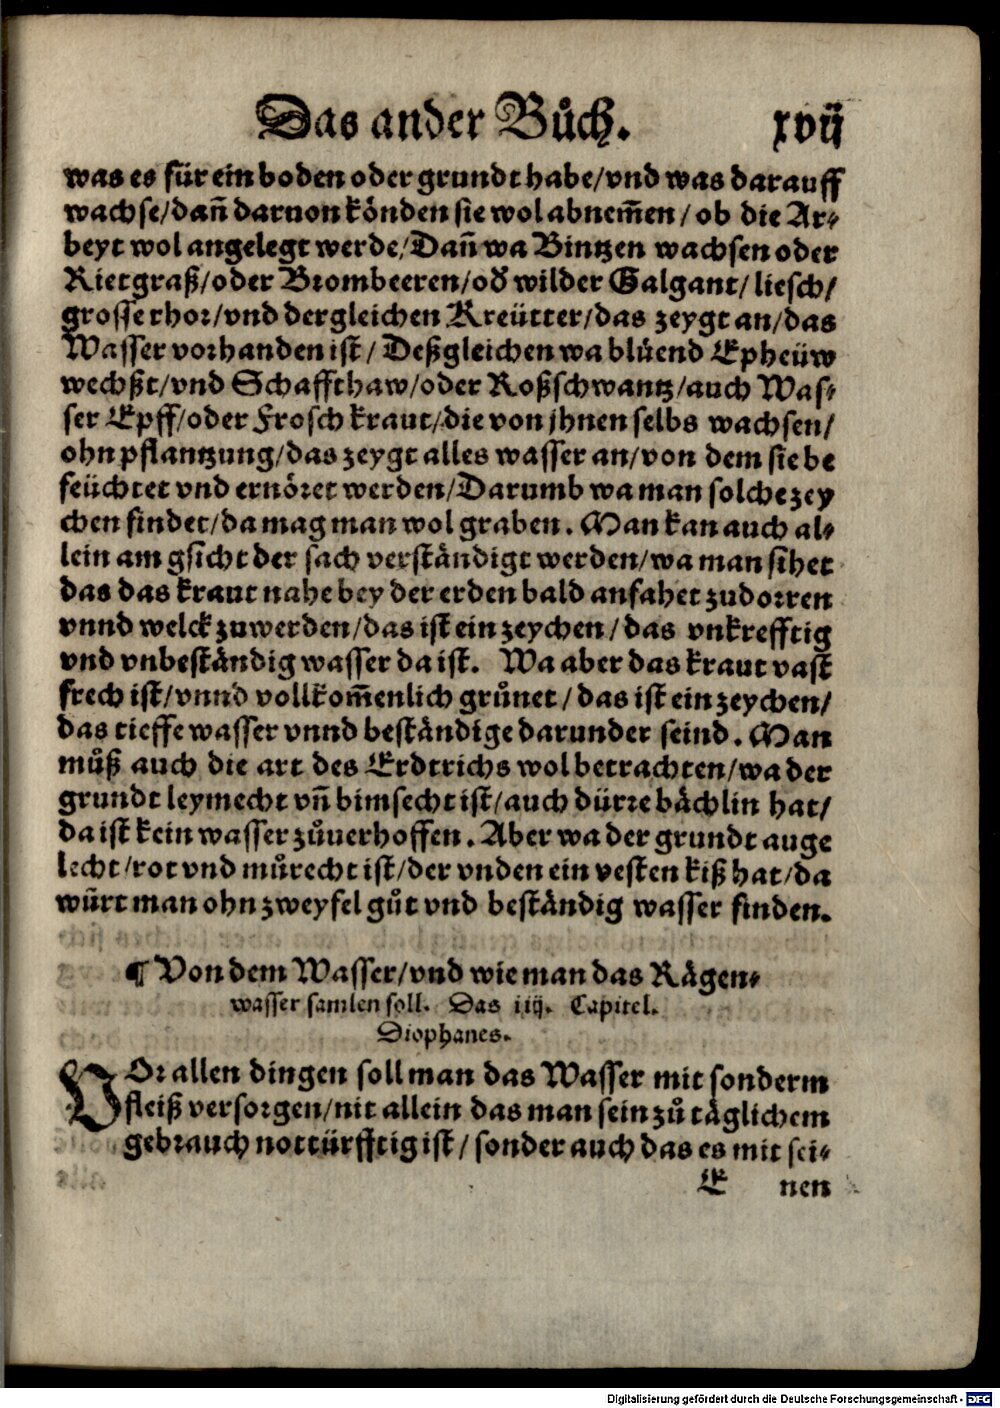 Das ander Bůch. xvij
was es für ein boden oder grundt habe/vnd was darauff
wachse/dañ daruon könden sie wol abnem̃en/ob die Ar-
beyt wol angelegt werde/Dañ wa Bintzen wachsen oder
Rietgraß/oder Brombeeren/od̕ wilder Galgant/liesch/
grosse rhor/vnd dergleichen Kreütter/das zeygt an/das
Wasser vorhanden ist/Deßgleichen wa blůend Epheüw
wechßt/vnd Schaffthaw/oder Roßschwantz/auch Was-
ser Epff/oder Frosch kraut/die von jhnen selbs wachsen/
ohn pflantzung/das zeygt alles wasser an/von dem sie be
feüchtet vnd ernöret werden/Darumb wa man solche zey
chen findet/da mag man wol graben. Man kan auch al-
lein am gsicht der sach verständigt werden/wa man sihet
das das kraut nahe bey der erden bald anfahet zudorren
vnnd welck zuwerden/das ist ein zeychen/das vnkrefftig
vnd vnbeständig wasser da ist. Wa aber das kraut vast
frech ist/vnnd vollkom̃enlich grůnet/das ist ein zeychen/
das tieffe wasser vnnd beständige darunder seind. Man
můß auch die art des Erdtrichs wol betrachten/wa der
grundt leymecht vñ bimsecht ist/auch dürre bächlin hat/
da ist kein wasser zůuerhoffen. Aber wa der grundt auge
lecht/rot vnd můrecht ist/der vnden ein vesten kiß hat/da
würt man ohn zweyfel gůt vnd beständig wasser finden.
¶ Von dem Wasser/vnd wie man das Rägen-
wasser samlen soll. Das iiij. Capitel.
Diophanes.
VOr allen dingen soll man das Wasser mit sonderm
fleiß versorgen/nit allein das man sein zů täglichem
gebrauch notturfftig ist/sonder auch das es mit sei-
E nen
Digitalisierung gefördert durch die Deutsche Forschungsgemeinschaft - DFG